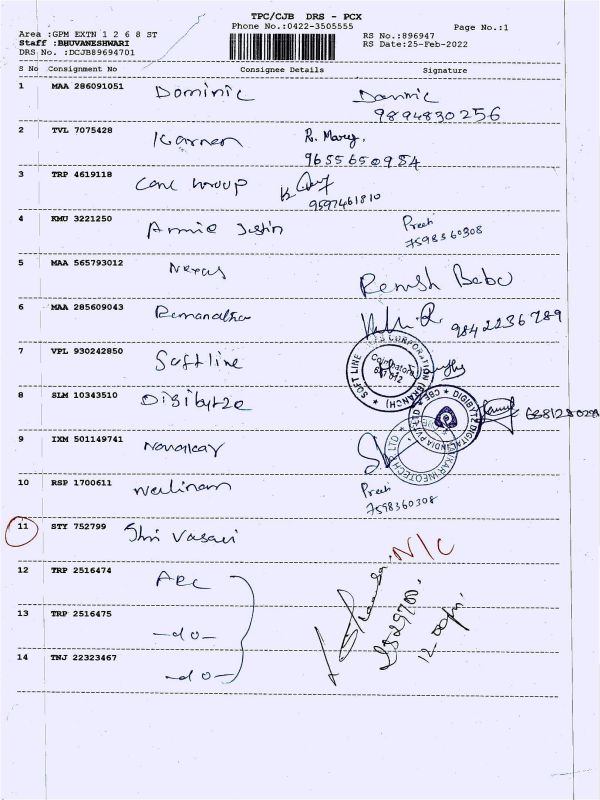 TPC/CJB DRS - PCX
Phone No.:0422-3505555
Page No.:1
Area :GPM EXTN 1 2 6 8 ST
RS No.:896947
Staff :BHUVANESHWARI
RS Date:25-Feb-2022
DRS No. :DCJB89694701
S No Consignment No Consignee Details Signature
1 MAA 286091051 Dominic Dominic
9894830256
2 TVL 7075428 R. Mary,
9655650984
3 TRP 4619118
9597461810
4 KMU 3221250 Annie Justin Preeti
7598360308
5 MAA 565793012 Nexus Remsh Babu
6 MAA 285609043 9842236789
7 VPL 930242850 Softline
SOFT LINE CORPORATION (BRANCH)
Coimbatore
8 SLM 10343510 Digibytze
DIGIBYTZ DIGITAL INDIA PVT LTD CBE
9 IXM 501149741
INFOTECH LTD
10 RSP 1700611 Preeti
7598360308
11 STY 752799 Shri Vasavi N/C
12 TRP 2516474 ARC
13 TRP 2516475 -do-
14 TNJ 22323467 -do-